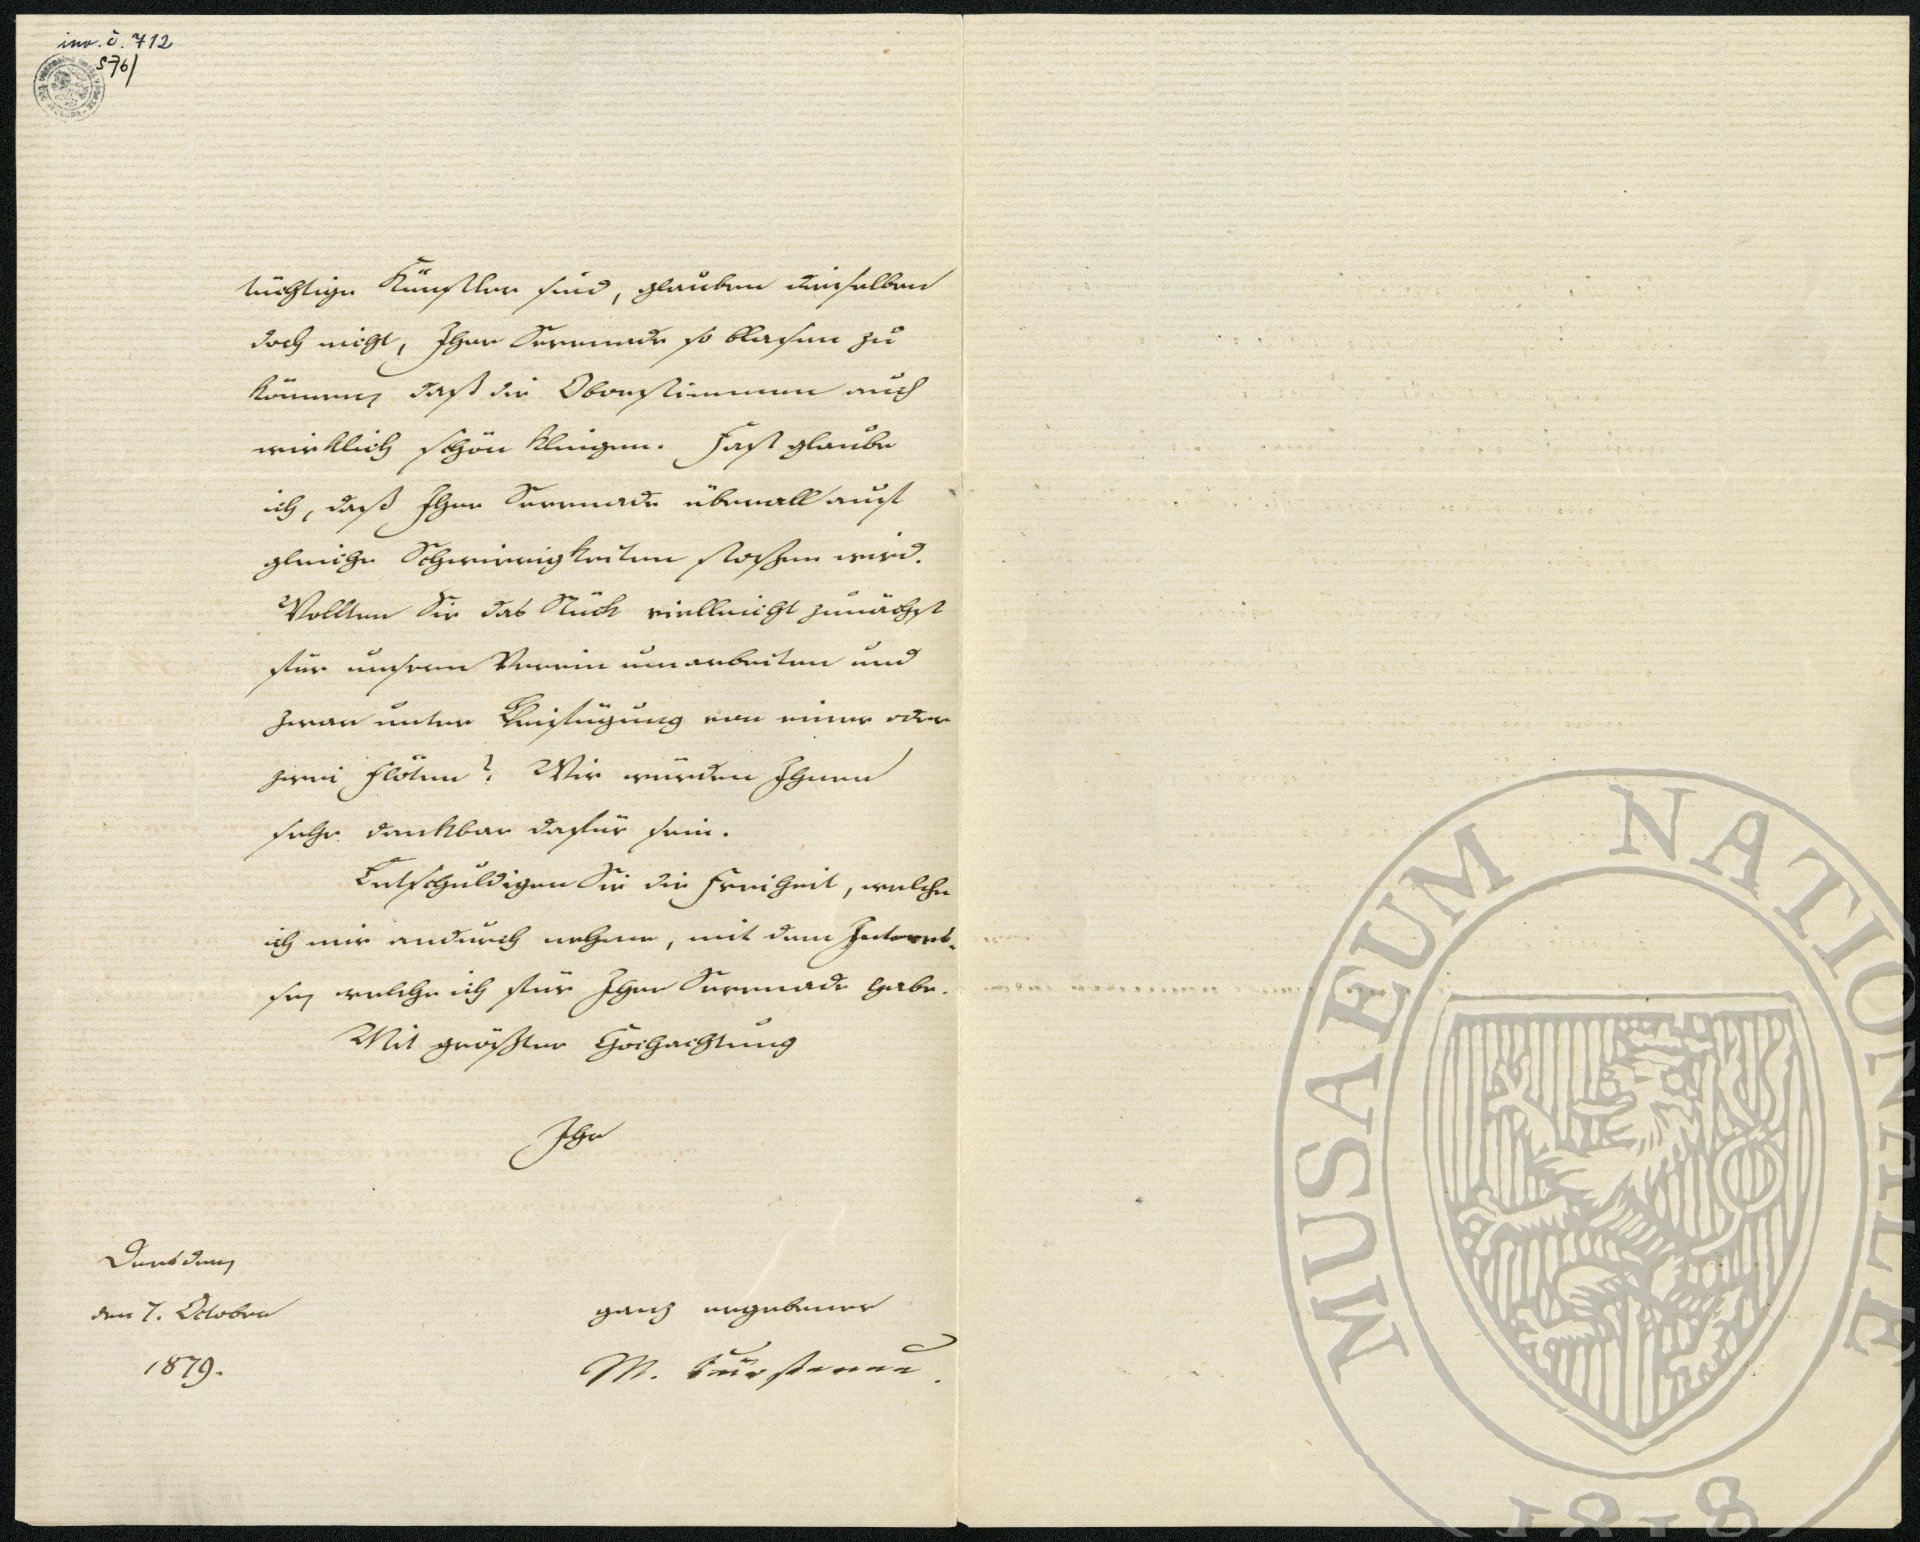 inv. č. 712
S76/
tüchtige Künstler sind, glauben dieselben
doch nicht, Ihre Serenade so blasen zu
können, daß die Oberstimmen auch
wirklich schön klingen. Fast glaube
ich, daß Ihre Serenade überall auf
gleiche Schwierigkeiten stoßen wird.
Wollten Sie das Stück vielleicht zunächst
für unseren Verein umarbeiten und
zwar unter Beifügung von einer oder
zwei Flöten? Wir würden Ihnen
sehr dankbar dafür sein.
Entschuldigen Sie die Freiheit, welche
ich mir andurch nehme, mit dem Interes-
se, welche ich für Ihre Serenade habe.
Mit größter Hochachtung
Ihr
Dresden,
den 7. October
1879.
ganz ergebener
M. Fürstenau.
MUSAEUM NATIONALE
1818